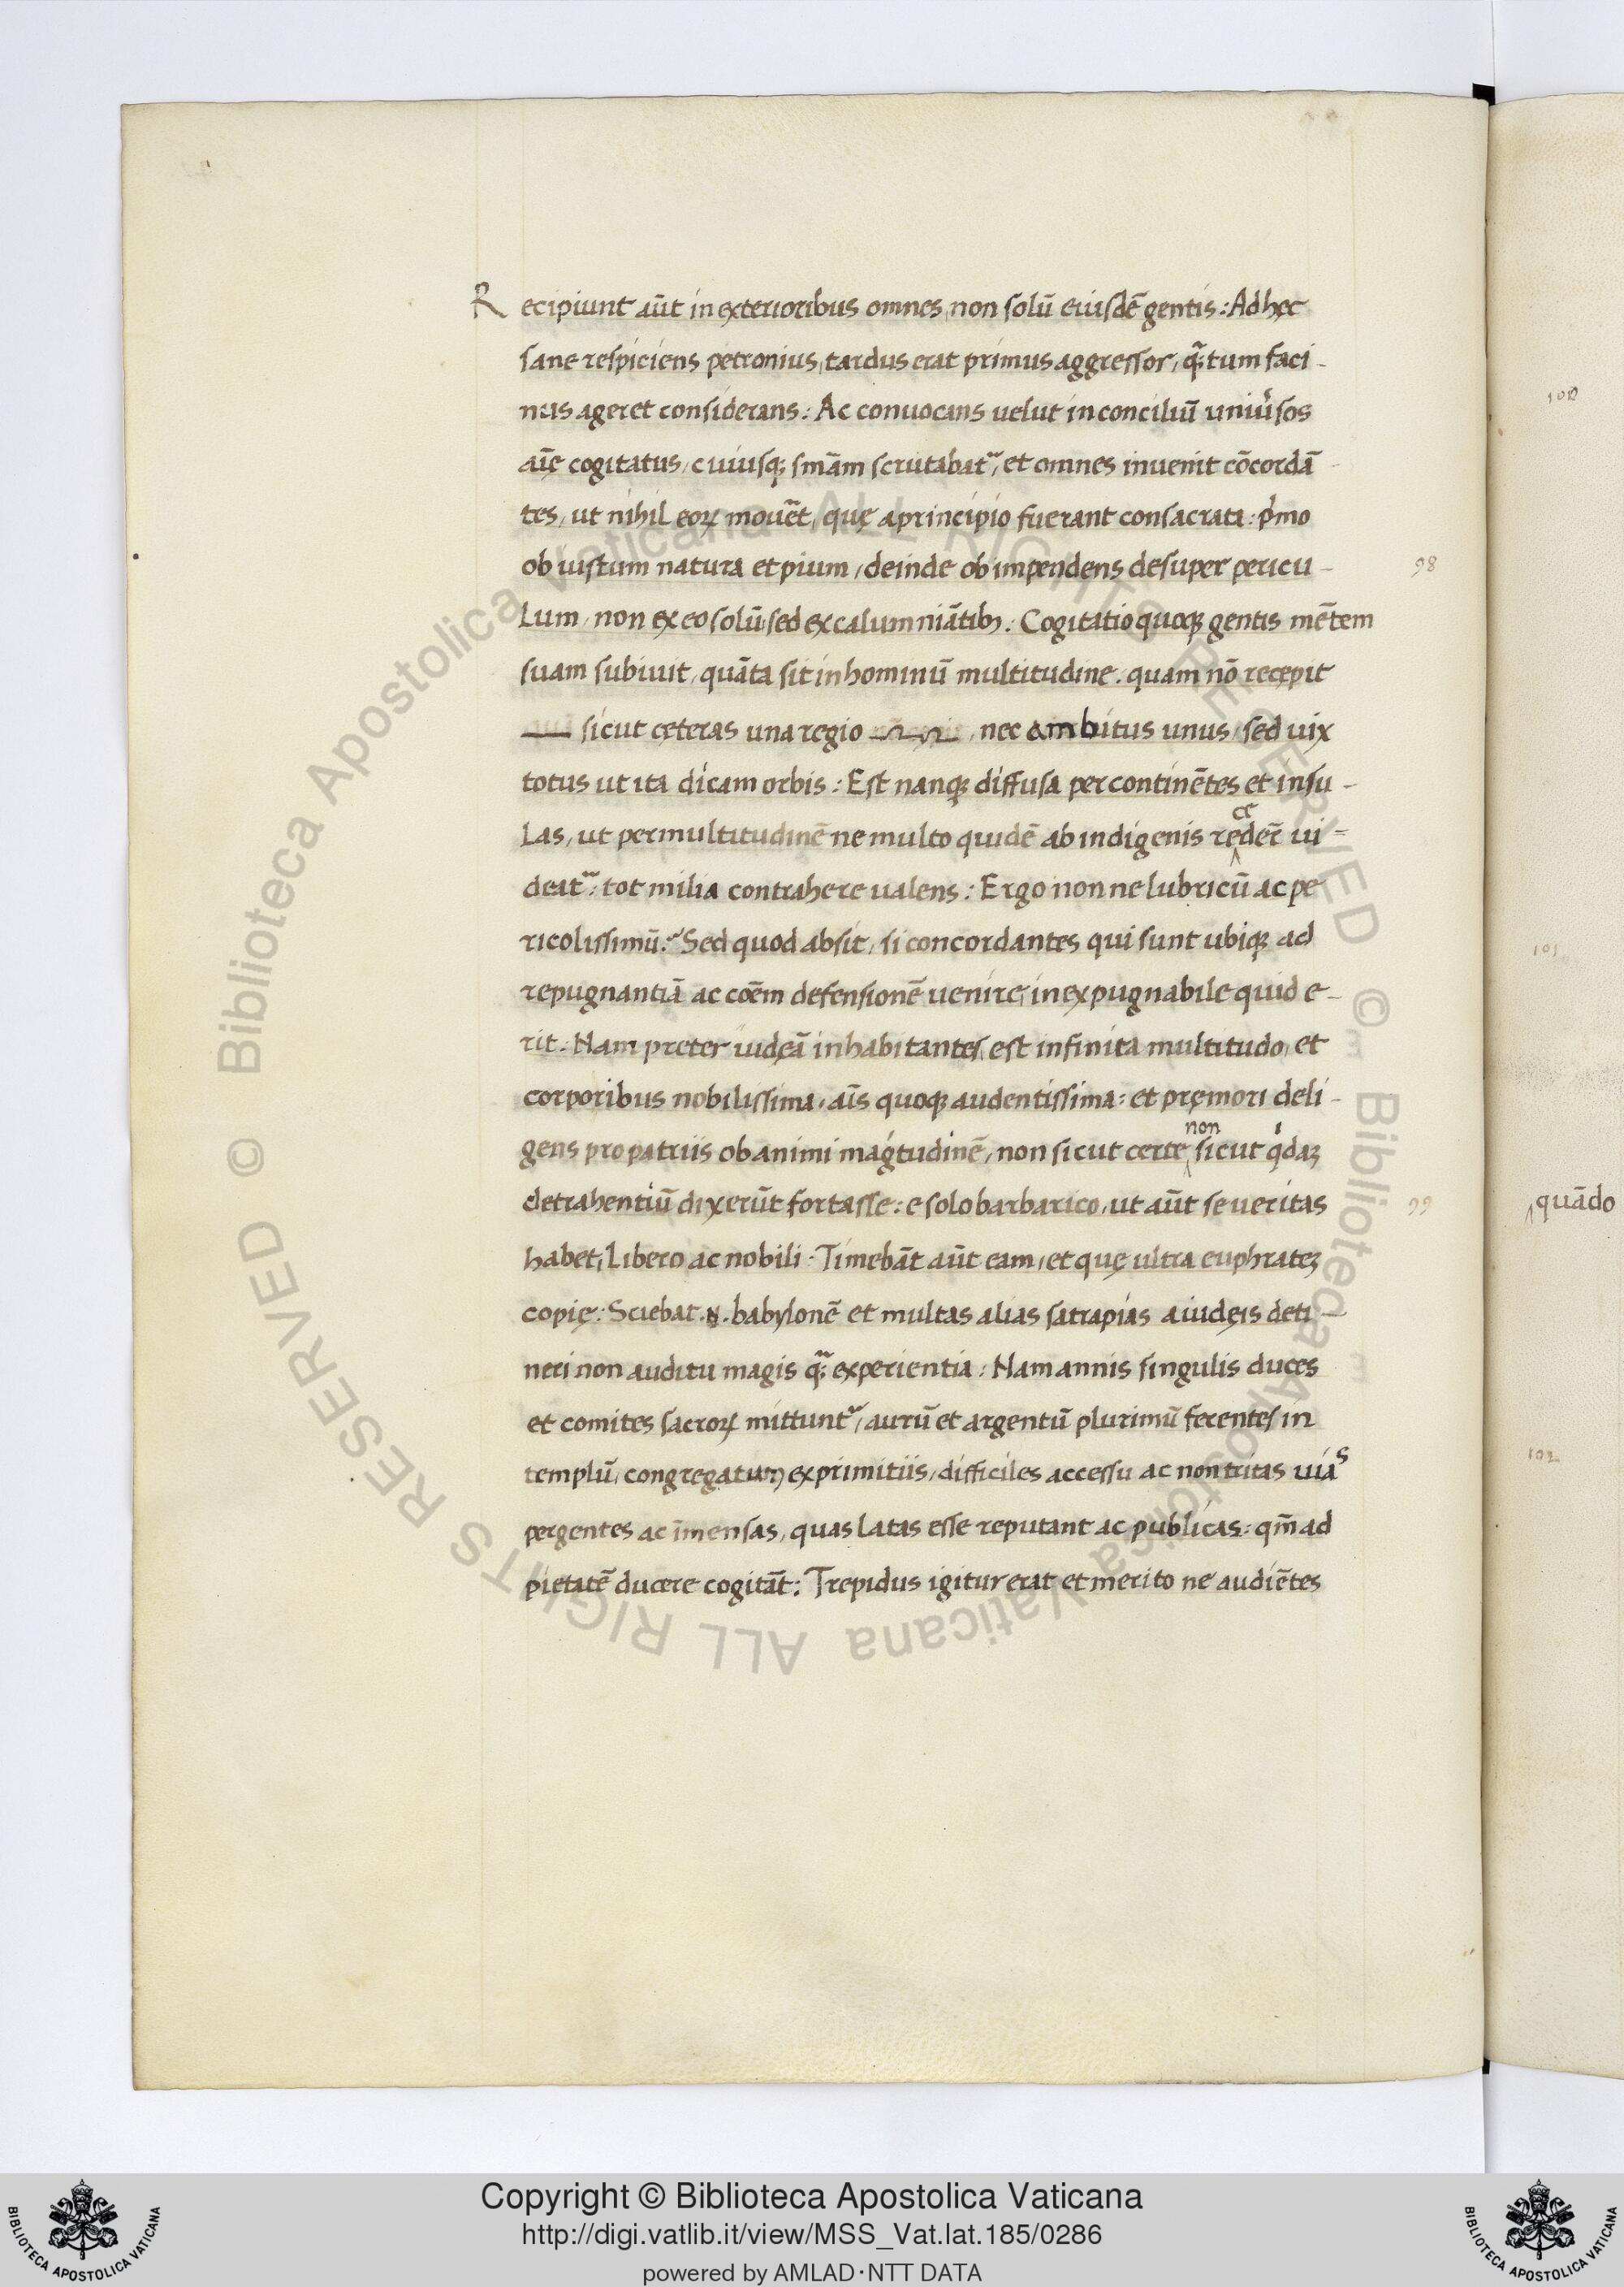 Recipiunt aūt in exterioribus omnes, non solū eiusdē gentis: Ad hęc
sane respiciens petronius, tardus erat primus aggressor, q̃tum faci-
nus ageret considerans: Ac conuocans uelut in conciliū uniūsos
aīę cogitatus, cuiusq; sn̄iam scrutabat᷑, et omnes inuenit cōcordā-
tes, ut nihil eoꝝ mouēt, quę a principio fuerant consacrata: p̍mo
ob iustum natura et pium, deinde ob impendens desuper pericu-
lum, non ex eo solū, sed ex calumniātibꝫ: Cogitatio quoq; gentis mētem
suam subiuit, quāta sit in hominū multitudine, quam nō recępit
sicut cęteras una regio, nec ambitus unus, sed uix
totus ut ita dicam orbis: Est nanq; diffusa per continētes et insu-
las, ut per multitudinē ne multo quidē ab indigenis re
ce
der̄ ui=
deat᷑: tot milia contrahere ualens: Ergo non ne lubricū ac pe
ricolissimū? Sed quod absit, si concordantes qui sunt ubiq; ad
repugnantiā ac cōem defensionē uenire, inexpugnabile quid e-
rit: Nam preter iudęā inhabitantes, est infinita multitudo, et
corporibus nobilissima, aīs quoq; audentissima: et pręmori deli-
gens pro patriis ob animi magıtudinē, non sicut certe
non
sicut qͥdaꝫ
detrahentiū dixerūt fortasse: e solo barbarico, ut aūt se ueritas
habet, libero ac nobili: Timebāt aūt eam, et quę ultra euphrateꝫ
copię: Sciebat .N. babylonē et multas alias satrapias a iudęis deti-
neri non auditu magis q̃; experientia: Nam annis singulis duces
et comites sacroꝝ mittunt᷑, aurū et argentū plurimū ferentes in
templū, congregatum ex primitiis, difficiles accessu ac non tritas uias
pergentes ac īmensas, quas latas esse reputant ac publicas: qm̄ ad
pietatē ducere cogitāt: Trepidus igitur erat et merito ne audiētes
98
99
100
101
102
quādo
© Biblioteca Apostolica Vaticana ALL RIGHTS RESERVED © Biblioteca Apostolica Vaticana ALL RIGHTS RESERVED
Copyright © Biblioteca Apostolica Vaticana
http://digi.vatlib.it/view/MSS_Vat.lat.185/0286
powered by AMLAD·NTT DATA
BIBLIOTECA APOSTOLICA VATICANA
BIBLIOTECA APOSTOLICA VATICANA